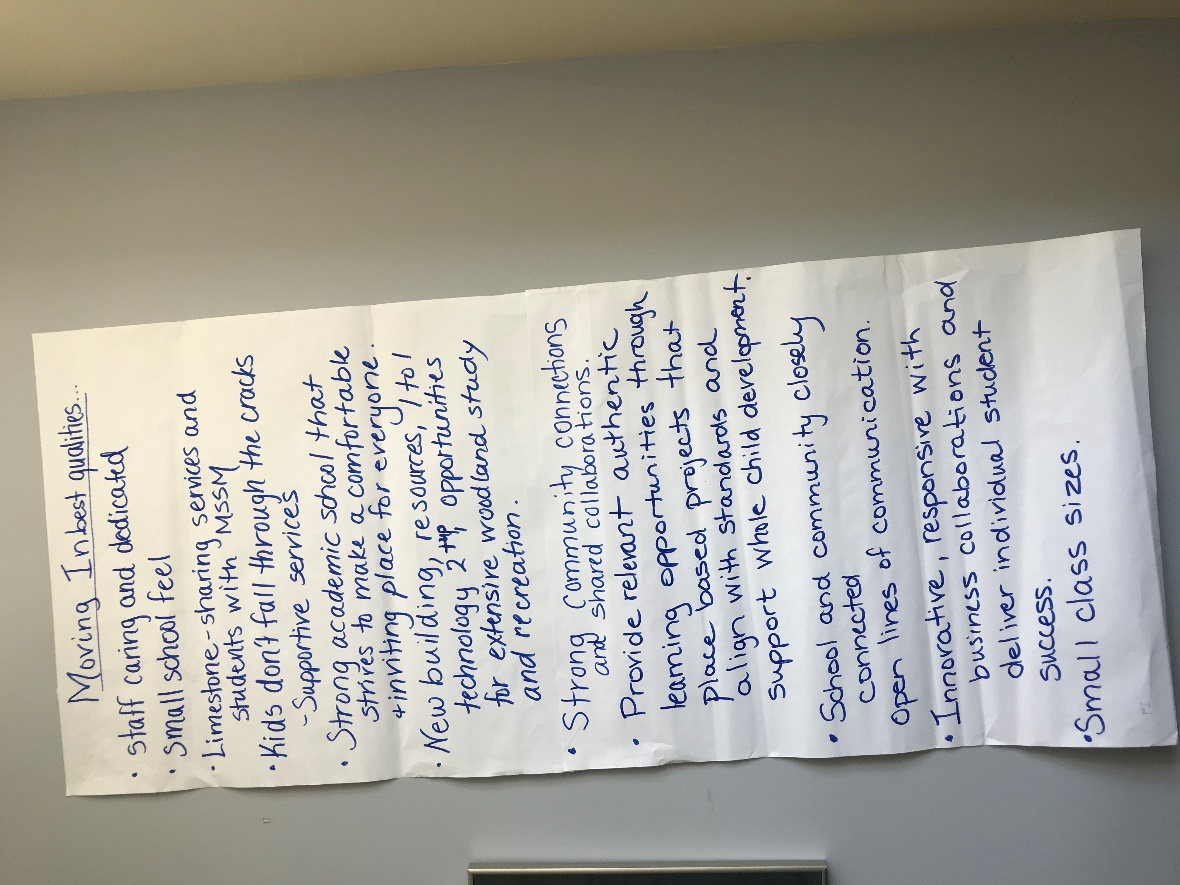 Moving In best qualities...
• staff caring and dedicated
• Small school feel
• Limestone-sharing services and
students with MSSM
• Kids don't fall through the cracks
- Supportive services
• Strong academic school that
strives to make a comfortable
+ inviting place for everyone.
• New building, resources, 1 to 1
technology, opportunities
for extensive woodland study
and recreation.
• Strong Community connections
and shared collaborations.
• Provide relevant authentic
learning opportunities through
place based projects that
align with standards and
support whole child development.
• School and community closely
connected
Open lines of communication.
• Innorative, responsive with
business collaborations and
deliver individual student
success.
• Small class sizes.